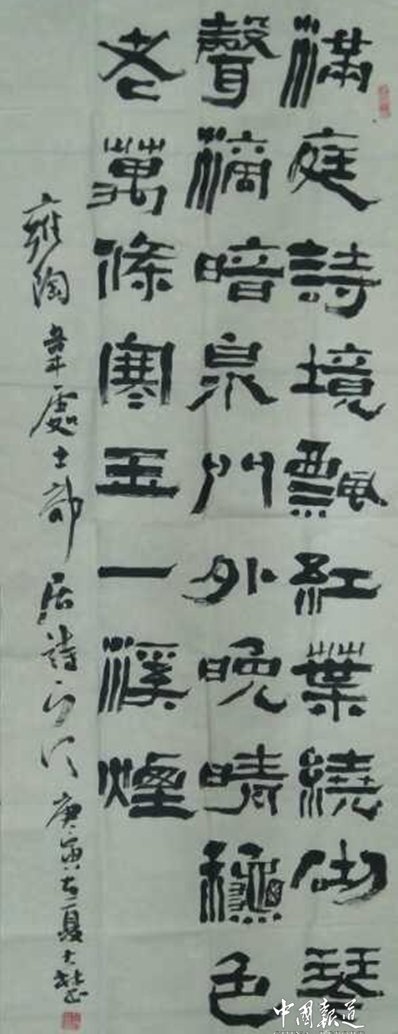 滿庭詩境飄紅葉繞砌琴
聲滴暗泉門外晚晴龝色
老萬條寒玉一溪煙
雍陶韋處士郊居詩庚寅夏
中國報道